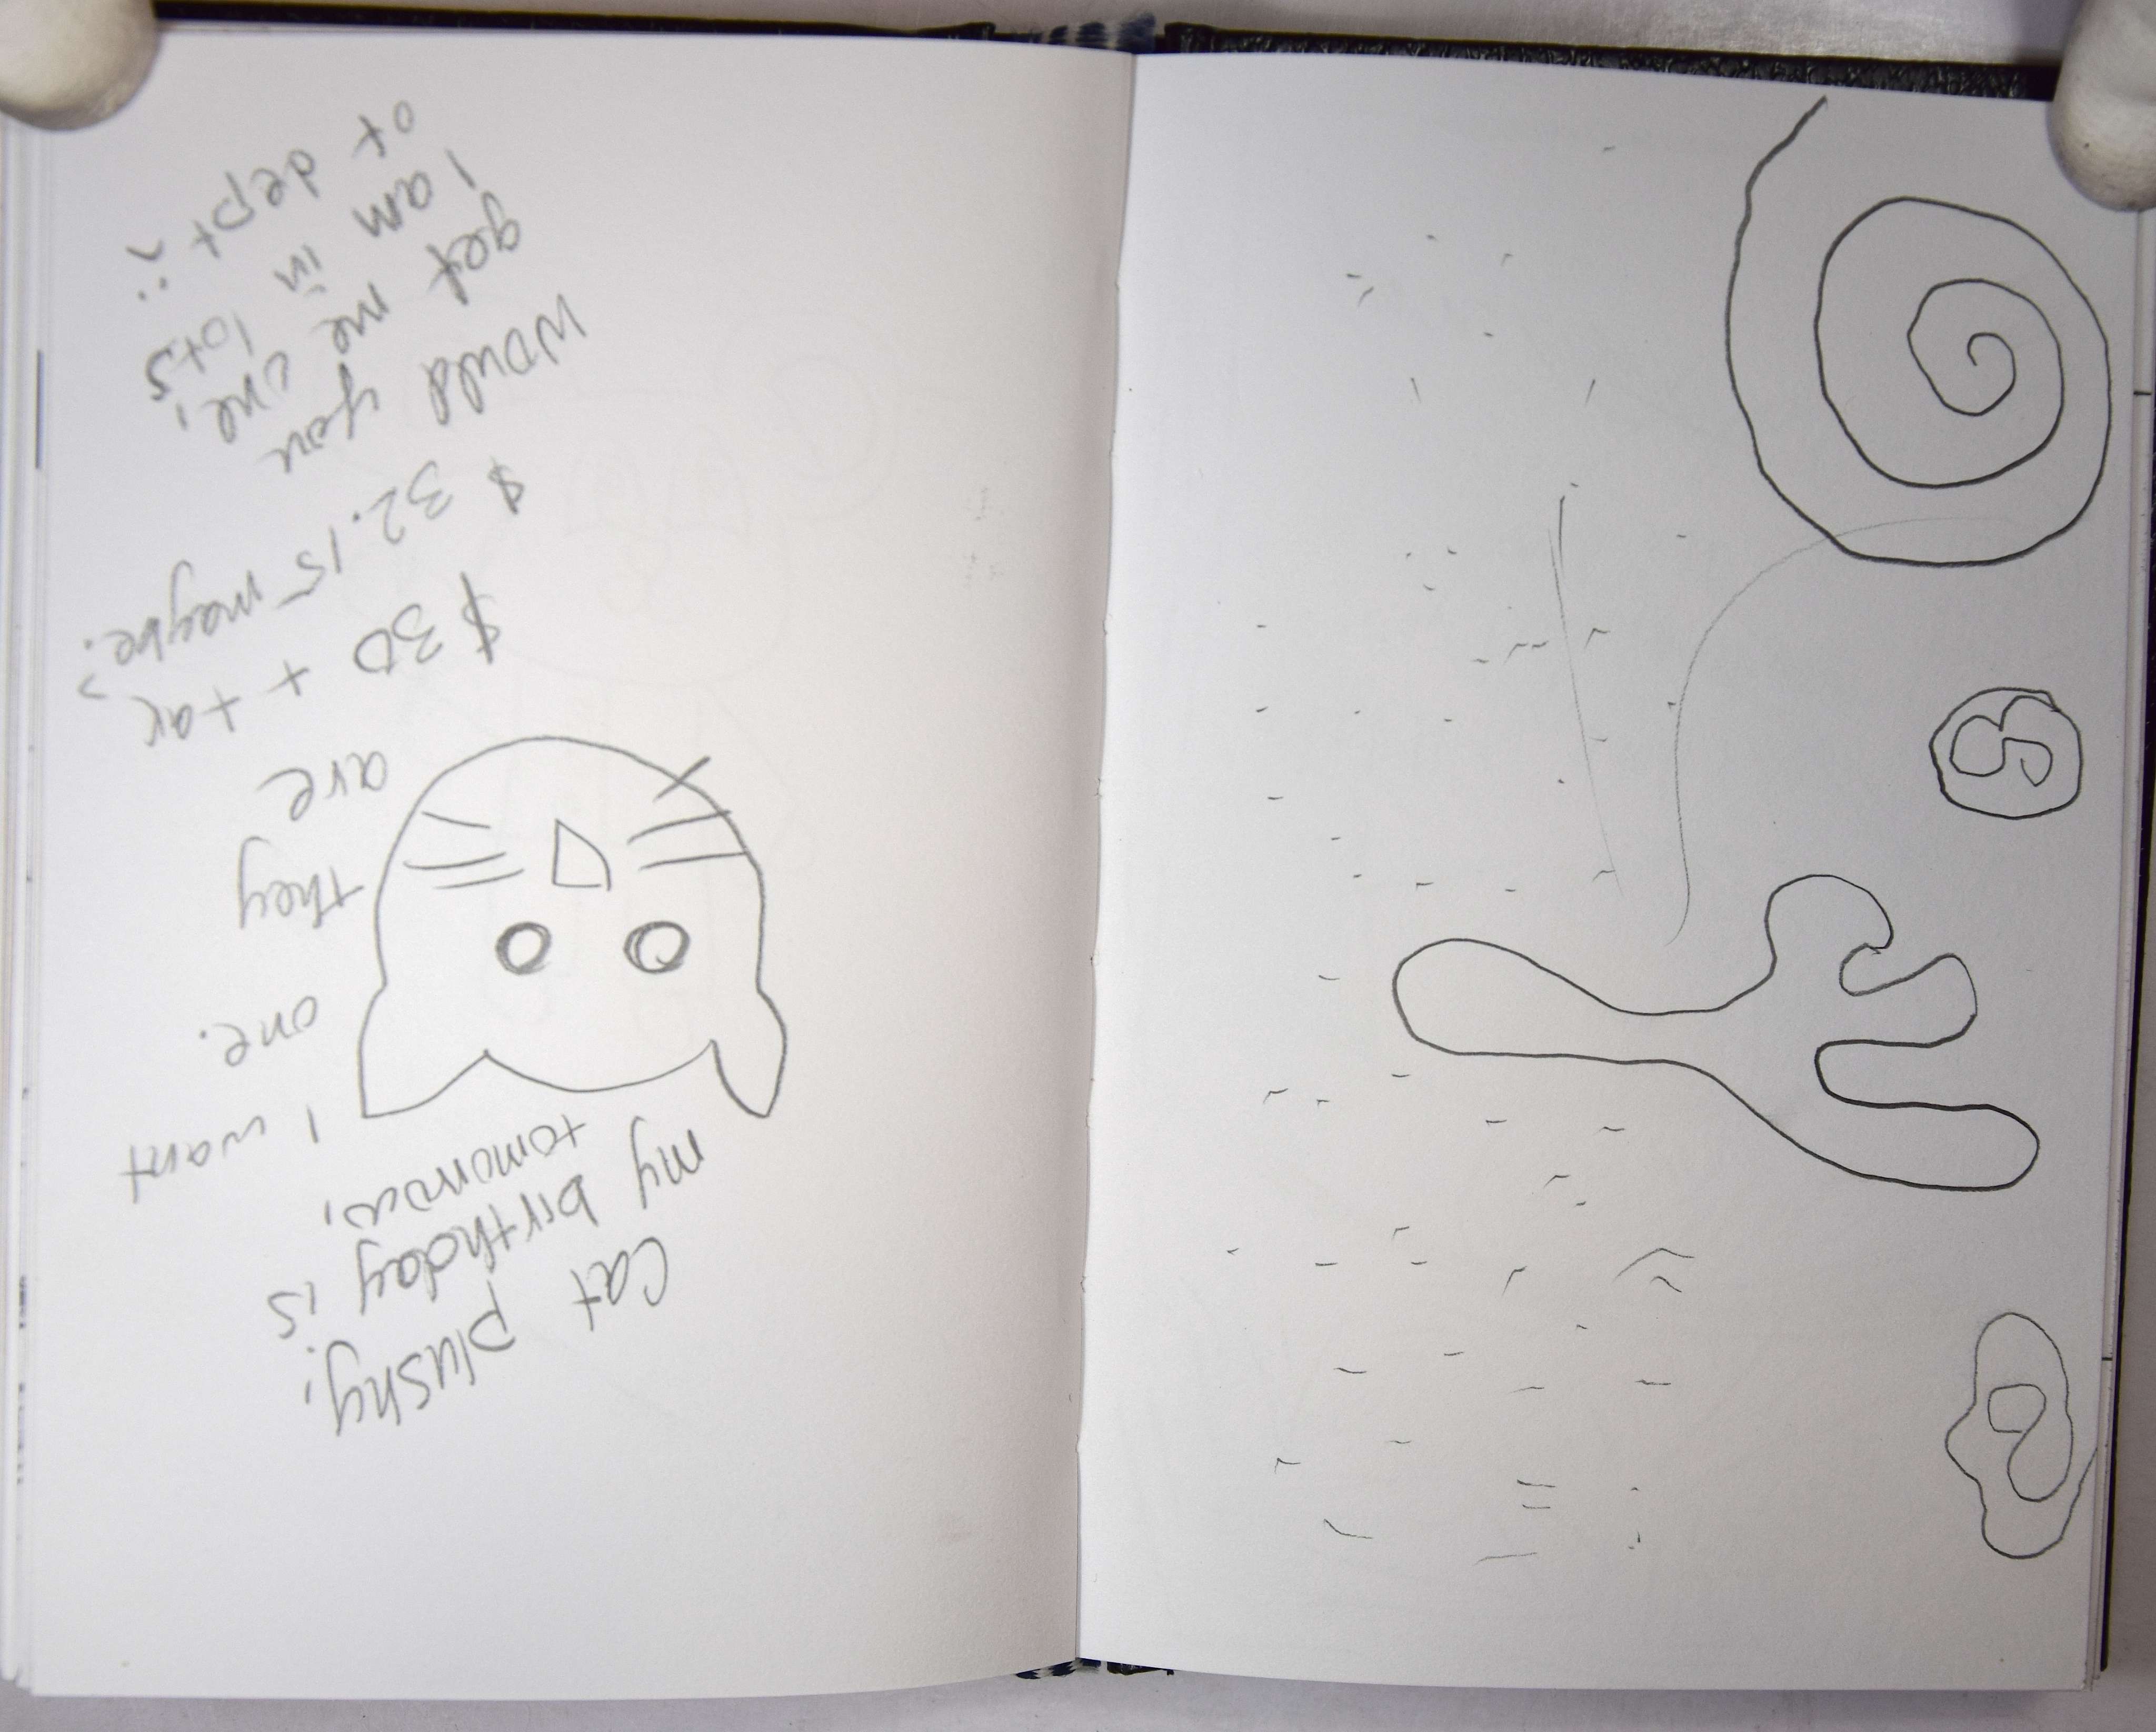 Cat plushy!
my birthday is
tomorrow,
I want
one.
they
are
$30 + tax
$32.15 maybe?
would you
get me one,
I am in lots
of dept :(